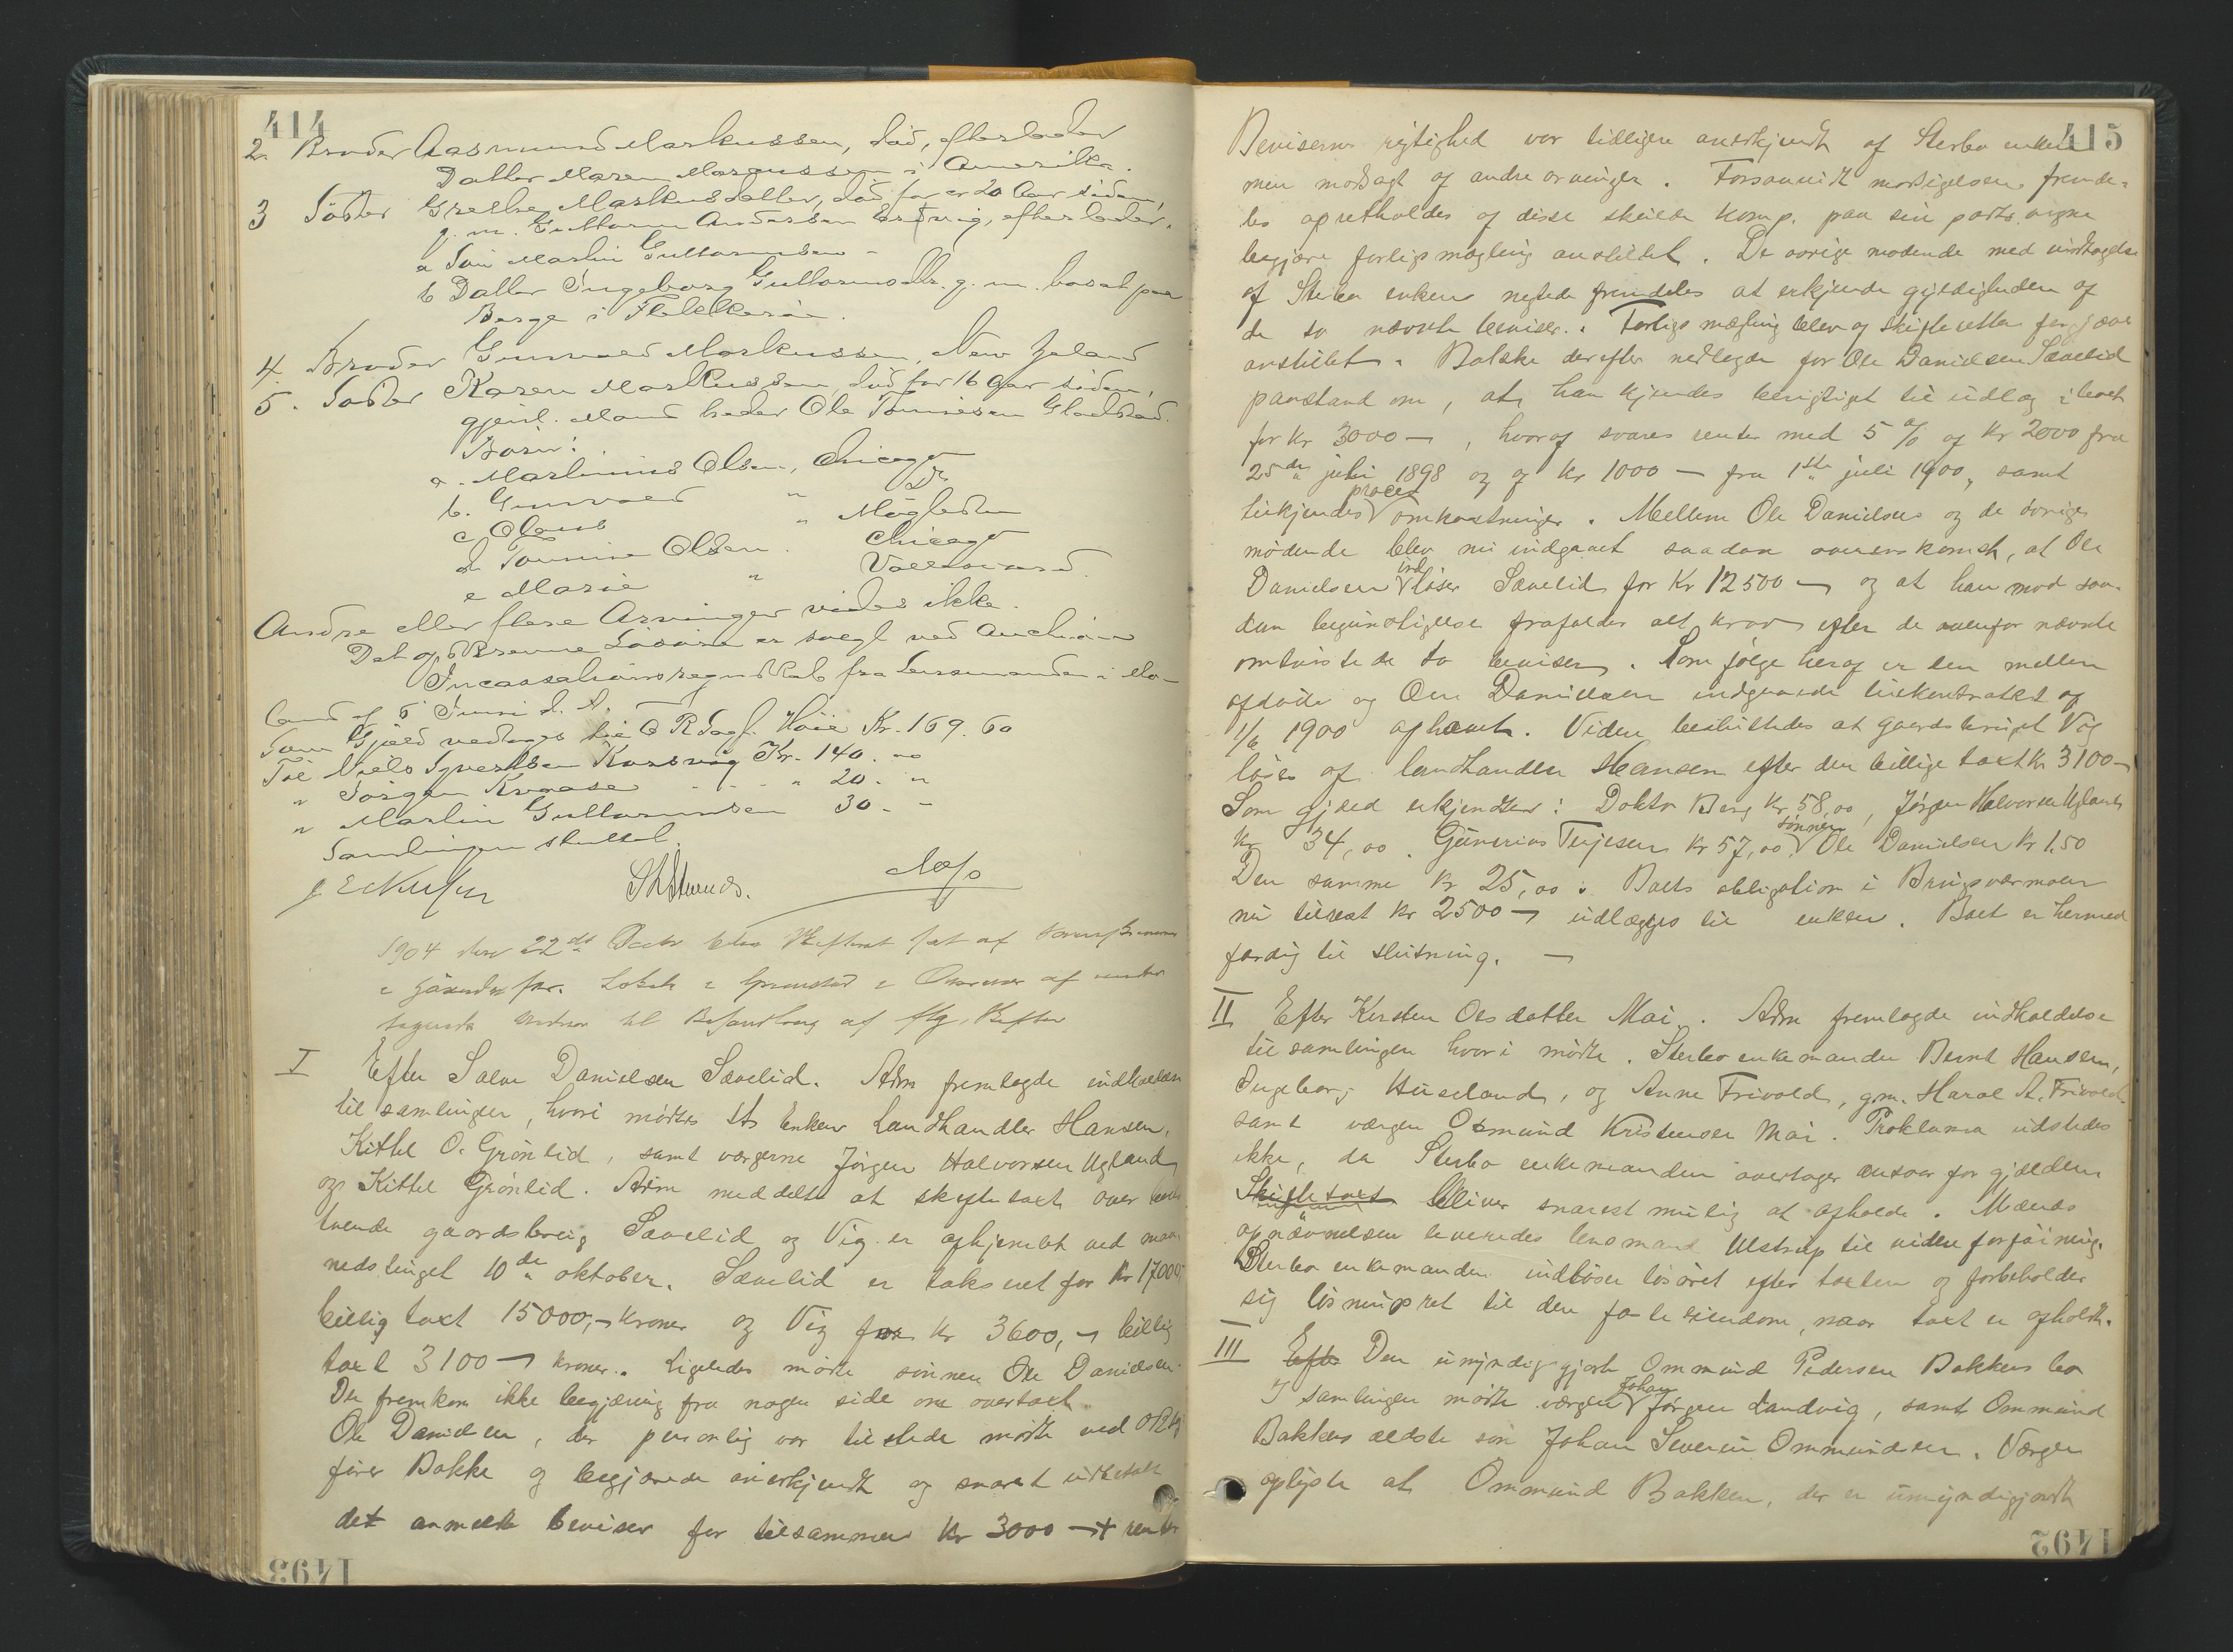 414
2. Broder Aasmund Markussen, död, efterlader
Datter Maren Marcussen i Amerika.
3 Söster Grethe Markusdatter, död for ca 20 Aar siden,
g. m. Guttorm Andersen, efterlader.
a Sön Martin Guttormsen -
b Datter Ingeborg Guttormsdtr. g. m. bosat paa
Berge i Flekkerö.
4. Broder Gunvald Markussen, New Zeland
5. Söster Karen Markussen, död for 16 Aar siden,
gjenl. Mand heder Ole Tönnesen Gladstad.
Börn:
a. Martinius Olsen, Chicago
b. Gunvald " Do
c Olaus " Mögleden
d Tomine Olsen. Chicago
e Marie "
Andre eller flere Arvinger vides ikke.
Det opskrevne Lösöre er solgt ved Auction
Incassationsregnskab fra Lensmanden i
land af 6 Juni d. A.
Som Gjæld vedtages til O R Sagf. Höie Kr. 169. 60
Til Niels Syvertsen Korsvig Kr. 140. "
" Jörgen Kvaase - - - " 20. "
" Martin Guttormsen 30 - -
Samlingen sluttet.
1904 den 22de Decbr blev Skifteret sat af
i hans Lokale i Grimstad i Overvær af under
tegnede Vidner til Behandling af flg. Skifter
I Efter Salve Danielsen Sævelid. Adm fremlagde indkaldelse
til samlingen, hvori mödte for Enken Landhandler Hansen,
Kittel O. Grönlid, samt værgerne Jörgen Halvorsen Ugland
og Kittel Grönlid. Adm meddelte at skiftetaxt over boets
tvende gaardsbrug Sævelid og Vig er afhjemlet ved maa-
nedstinget 10de oktober. Sævelid er taksert for Kr 17000
billig taxt 15000,- kroner og Vig for Kr 3600,- billig
taxt 3100 - kroner. Ligeledes mödte sönnen Ole Danielsen.
Der fremkom ikke begjæring fra nogen side om overtaxt.
Ole Danielsen, der personlig var tilstede mödte ved ORSag
förer Bakke og begjærede anerkjendt og snarest udbetalt
det anmeldte beviser for tilsammen Kr 3000 - + renter
1493
415
Bevisernes rigtighed var tidligere anerkjendt af Sterbo enken
men modsagt af andre arvinger. Forsaavidt modsigelsen fremde-
les opretholdes af disse skulde komp. paa sin parts vegne
begjære forligsmægling anstillet. De övrige mödende med undtagelse
af Sterbo enken negtede fremdeles at erkjende gyldigheden af
de to nævnte beviser. Forligsmægling blev af skifteretten forgjæves
anstillet. Bakke derefter nedlagde for Ole Danielsen Sævelid
paastand om, at han kjendes berettiget til udlæg i boet
for Kr 3000 -, hvoraf svares renter med 5 % af Kr 2000 fra
25de juli 1898 og af Kr 1000 - fra 1ste juli 1900, samt
tilkjendes proces omkostninger. Mellem Ole Danielsen og de övrige
mödende blev nu indgaaet saadan overenskomst, at Ole
Danielsen indlöser Sævelid for Kr 12500 - og at han mod saa-
dan begunstigelse frafalder alt krav efter de ovenfor nævnte
omtvistede to beviser. Som fölge heraf er den mellem
afdöde og Ole Danielsen indgaaede kontrakt af
1/6 1900 ophævet. Videre besluttedes at gaardsbruget Vig
löses af landhandler Hansen efter den billige taxt Kr 3100 -
Som gjæld erkjendtes: Doktor Berg Kr 58,00, Jörgen Halvorsen Ugland
Kr 34,00. Gunerius Terjesen Kr 57,00, sönnen Ole Danielsen Kr 1,50
Den samme Kr 25,00. Boets obligation i
nu tilrest Kr 2500 - udlægges til enken. Boet er hermed
færdig til slutning. -
II Efter Kirsten Olsdatter Moi. Adm fremlagde indkaldelse
til samlingen hvori mödte. Sterbo enkemanden Bernt Hansen,
Ingeborg Huseland, og Anne Frivold, g.m. Haral A. Frivold
samt værgen Osmund Kristensen Moi. Proklama udstedes
ikke, da Sterbo enkemanden overtager ansvar for gjælden
Skiftetaxt bliver snarest mulig at afholde. Mænds
opnævnelsen leveredes lensmand Ulstrup til videre forföining.
Sterbo enkemanden indlöser lösöret efter taxten og forbeholder
sig lösningsret til den faste eiendom, naar taxt er afholdt.
III Efter Den umyndiggjorte Ommund Pedersen Bakkens bo
I samlingen mödte værgen Johan Jörgen Landvig, samt Ommund
Bakkens ældste sön Johan Severin Ommundsen. Værgen
oplyste at Ommund Bakken, der er umyndiggjordt
1492